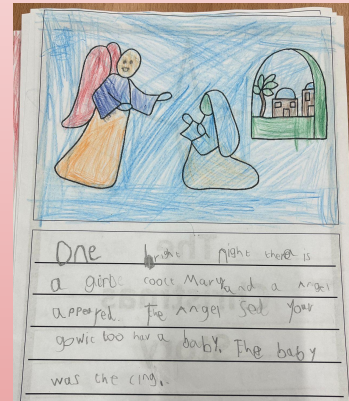 One bright night there is
a girl cools Mary and a Angel
appeared. The Angel Sed your
gowic too hav a baby. The baby
was the cing.